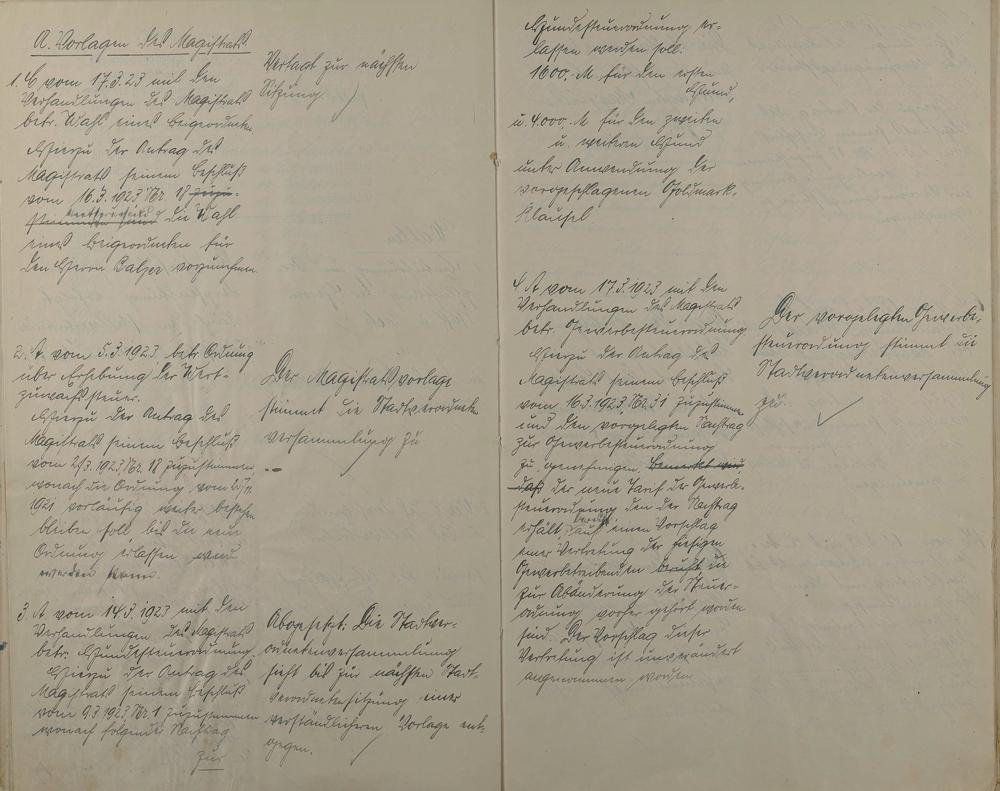 A. Vorlagen des Magistrats
1. C vom 17.3.23 mit den
Verhandlungen des Magistrats
betr. Wahl eines Beigeordneten.
Hierzu der Antrag des
Magistrats seinem Beschluß
vom 16.3.1923 Nr. 18
die Wahl
eines Beigeordneten für
den Herrn Balzer vorzunehmen
Vertagt zur nächsten
Sitzung
2. A. vom 5.3.1923 betr. Ordnung
über Erhebung der Wert-
zuwachssteuer.
Hierzu der Antrag des
Magistrats seinem Beschluß
vom 2.3.1923 Nr. 18 zuzustimmen,
wonach die Ordnung vom
1921 vorläufig weiter bestehen
bleiben soll, bis die neue
Ordnung erlassen wird
werden kann.
Der Magistratsvorlage
stimmt die Stadtverordneten
versammlung zu
3. A. vom 14.3.1923 mit den
Verhandlungen des Magistrats
betr. Hundesteuerordnung.
Hierzu der Antrag des
Magistrats seinem Beschluß
vom 9.3.1923 Nr. 1 zuzustimmen
wonach folgender Nachtrag
zur
Abgesetzt: Die Stadtver-
ordnetenversammlung
sieht bis zur nächsten Stadt-
verordnetensitzung einer
verständlicheren Vorlage ent-
gegen.
Hundesteuerordnung er-
lassen werden soll:
1600.M für den ersten
Hund,
u. 4.000.M für den zweiten
u. weiteren Hund
unter Anwendung der
vorgeschlagenen Goldmark-
klausel
4. A vom 17.3.1923 mit den
Verhandlungen des Magistrats
betr. Gewerbesteuerordnung
Hierzu der Antrag des
Magistrats seinem Beschluß
vom 16.3.1923, Nr. 31 zuzustimmen
und den vorgelegten Nachtrag
zur Gewerbesteuerordnung
zu genehmigen. Bemerkt wird,
daß der neue Tarif der Gewerbe-
steuerordnung den der Nachtrag
erhält, auf einen Vorschlag
einer Vertretung der hiesigen
Gewerbetreibenden beruht, die
zur Abänderung der Steuer-
ordnung vorher gehört worden
sind. Der Vorschlag dieser
Vertretung ist unverändert
angenommen worden
Der vorgelegten Gewerbe-
steuerordnung stimmt die
Stadtverordnetenversammlung
zu.